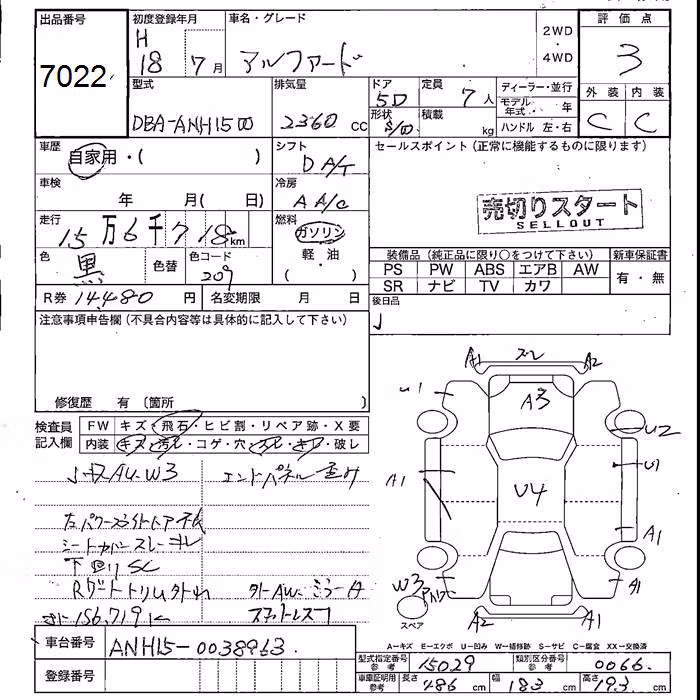 出品番号 初度登録年月 車名・グレード 評価点
7022 H 18 7月 アルファード 2WD ・ 4WD 3
型式 排気量 ドア 5D 定員 7人 ディーラー・並行 外装 内装
DBA-ANH15W 2360 cc 形状 S/W 積載 kg モデル年式 年 C C
ハンドル 左・右
車歴 自家用・( ) シフト D A/T セールスポイント(正常に機能するものに限ります)
車検 年 月( 日) 冷房 A A/C
走行 15万6千718km 燃料 ガソリン・軽・油 ( ) 売切りスタート
SELLOUT
色 黒 色替 色コード 209 装備品(純正品に限り○をつけて下さい) 新車保証書
PS PW ABS エアB AW 有・無
SR ナビ TV カワ
R券 14,480 円 名変期限 月 日 後日品
注意事項申告欄(不具合内容等は具体的に記入して下さい)
修復歴 有(箇所 )
検査員記入欄 FW キズ・飛石・ヒビ割・リペア跡・X要
内装 キズ・汚レ・コゲ・穴・スレ・キレ・破レ
エンドパネル歪み
シートカバースレ・キレ
下回りSC
A1 ズレ A2
U1 A3 U2
A1 U4 U1
A1
W3 A1
スペア A2 A1
A―キズ E―エクボ U―凹み W―補修跡 S―サビ C―腐食 XX―交換済
車台番号 ANH15-0038963
型式指定番号 参考 15029 類別区分番号 参考 0066
登録番号 車庫証明用 参考 長さ 486 cm 幅 183 cm 高さ 193 cm